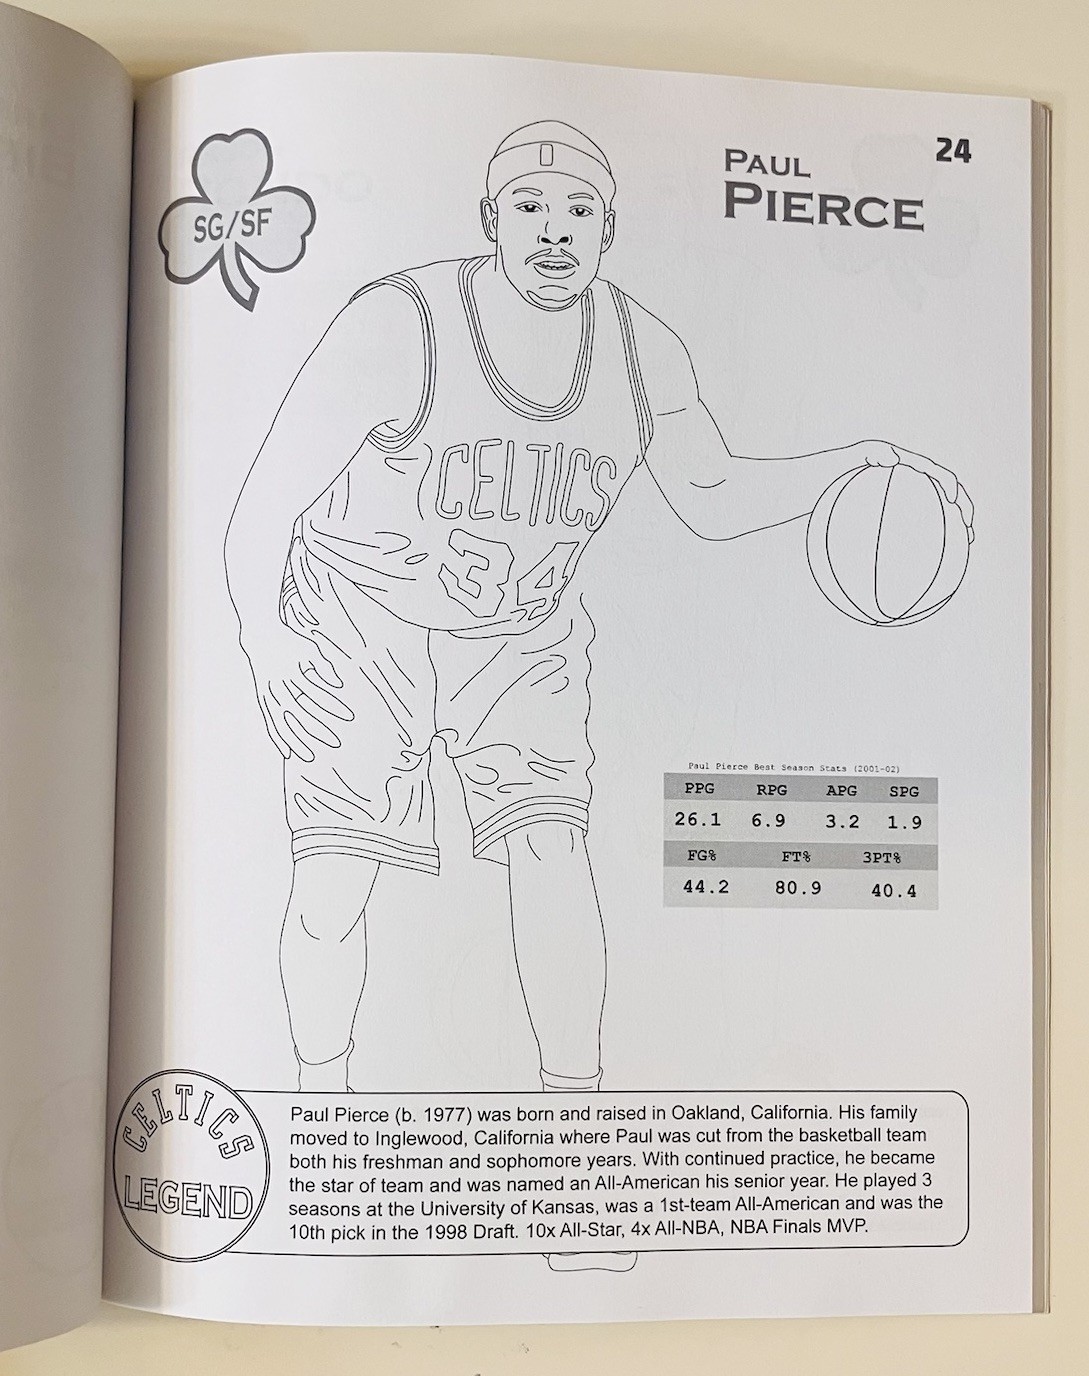 SG/SF
PAUL
PIERCE
24
CELTICS
34
Paul Pierce Best Season Stats (2001-02)
PPG RPG APG SPG
26.1 6.9 3.2 1.9
FG% FT% 3PT%
44.2 80.9 40.4
CELTICS
LEGEND
Paul Pierce (b. 1977) was born and raised in Oakland, California. His family
moved to Inglewood, California where Paul was cut from the basketball team
both his freshman and sophomore years. With continued practice, he became
the star of team and was named an All-American his senior year. He played 3
seasons at the University of Kansas, was a 1st-team All-American and was the
10th pick in the 1998 Draft. 10x All-Star, 4x All-NBA, NBA Finals MVP.